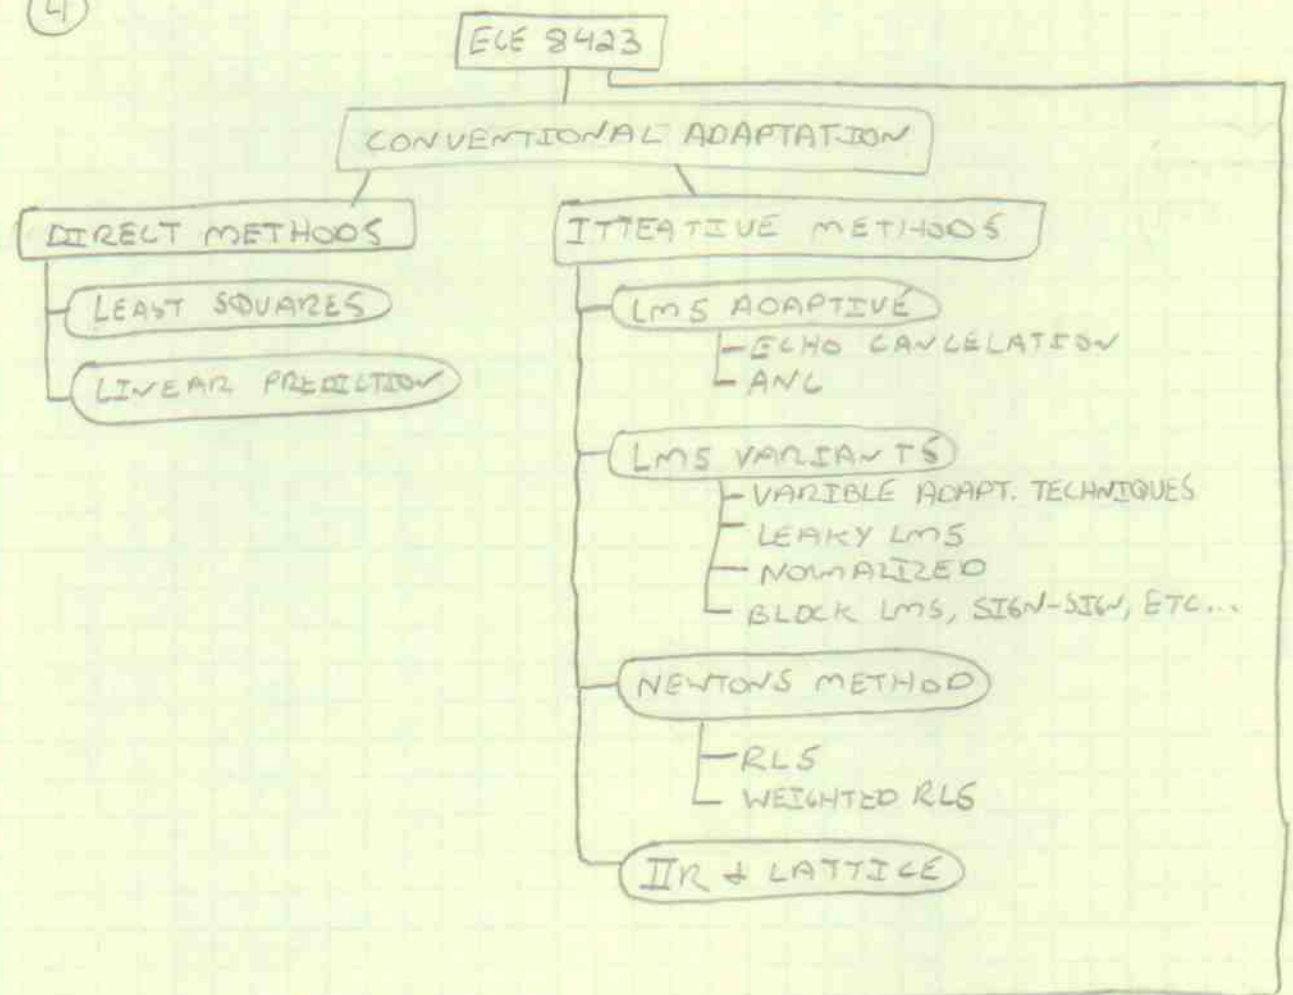 4
ECE 8423
CONVENTIONAL ADAPTATION
DIRECT METHODS
ITTEATIVE METHODS
LEAST SQUARES
LINEAR PREDICTION
LMS ADAPTIVE
ECHO CANCELATION
ANC
LMS VARIANTS
VARIBLE ADAPT. TECHNIQUES
LEAKY LMS
NOMALIZED
BLOCK LMS, SIGN-SIGN, ETC...
NEWTONS METHOD
RLS
WEIGHTED RLS
IIR & LATTICE